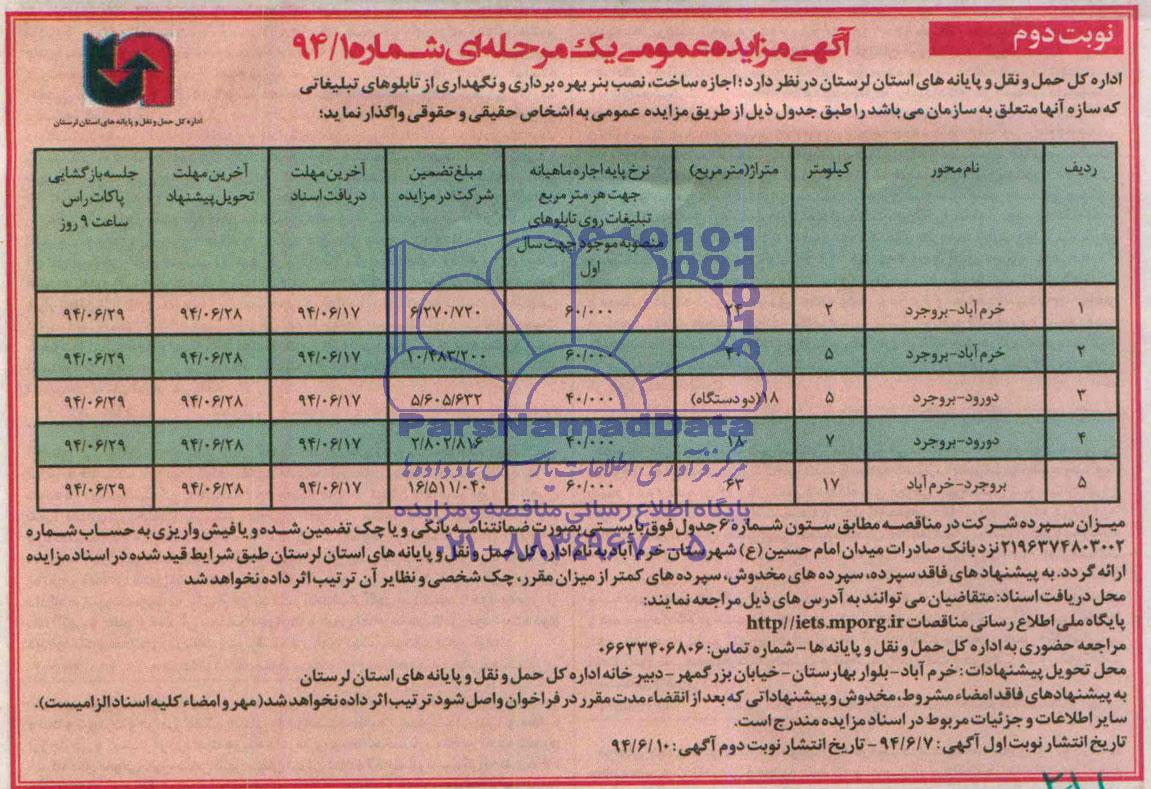 نوبت دوم
آگهی مزایده عمومی یک مرحله‌ای شماره ۹۴/۱
اداره کل حمل و نقل و پایانه های استان لرستان
اداره کل حمل و نقل و پایانه های استان لرستان در نظر دارد؛ اجازه ساخت، نصب بنر بهره برداری و نگهداری از تابلوهای تبلیغاتی
که سازه آنها متعلق به سازمان می باشد را طبق جدول ذیل از طریق مزایده عمومی به اشخاص حقیقی و حقوقی واگذار نماید؛
ردیف | نام محور | کیلومتر | متراژ(متر مربع) | نرخ پایه اجاره ماهیانه جهت هر متر مربع تبلیغات روی تابلوهای منصوبه موجود جهت سال اول | مبلغ تضمین شرکت در مزایده | آخرین مهلت دریافت اسناد | آخرین مهلت تحویل پیشنهاد | جلسه بازگشایی پاکات راس ساعت ۹ روز
۱ | خرم آباد-بروجرد | ۲ | ۲۴ | ۶۰/۰۰۰ | ۶/۲۷۰/۷۲۰ | ۹۴/۰۶/۱۷ | ۹۴/۰۶/۲۸ | ۹۴/۰۶/۲۹
۲ | خرم آباد-بروجرد | ۵ | ۴۰ | ۶۰/۰۰۰ | ۱۰/۴۸۳/۲۰۰ | ۹۴/۰۶/۱۷ | ۹۴/۰۶/۲۸ | ۹۴/۰۶/۲۹
۳ | دورود-بروجرد | ۵ | ۱۸(دو دستگاه) | ۴۰/۰۰۰ | ۵/۶۰۵/۶۳۲ | ۹۴/۰۶/۱۷ | ۹۴/۰۶/۲۸ | ۹۴/۰۶/۲۹
۴ | دورود-بروجرد | ۷ | ۱۸ | ۴۰/۰۰۰ | ۲/۸۰۲/۸۱۶ | ۹۴/۰۶/۱۷ | ۹۴/۰۶/۲۸ | ۹۴/۰۶/۲۹
۵ | بروجرد-خرم آباد | ۱۷ | ۶۳ | ۶۰/۰۰۰ | ۱۶/۵۱۱/۰۴۰ | ۹۴/۰۶/۱۷ | ۹۴/۰۶/۲۸ | ۹۴/۰۶/۲۹
ParsNamadData
مرکز فرآوری اطلاعات پارس نماد داده ها
پایگاه اطلاع رسانی مناقصه و مزایده
۰۲۱-۸۸۳۴۹۶۷۰-۵
میزان سپرده شرکت در مناقصه مطابق ستون شماره ۶ جدول فوق بایستی بصورت ضمانتنامه بانکی و یا چک تضمین شده و یا فیش واریزی به حساب شماره
۲۱۹۶۳۷۴۸۰۳۰۰۲ نزد بانک صادرات میدان امام حسین (ع) شهرستان خرم آباد به نام اداره کل حمل و نقل و پایانه های استان لرستان طبق شرایط قید شده در اسناد مزایده
ارائه گردد. به پیشنهادهای فاقد سپرده، سپرده های مخدوش، سپرده های کمتر از میزان مقرر، چک شخصی و نظایر آن ترتیب اثر داده نخواهد شد
محل دریافت اسناد: متقاضیان می توانند به آدرس های ذیل مراجعه نمایند:
پایگاه ملی اطلاع رسانی مناقصات http//iets.mporg.ir
مراجعه حضوری به اداره کل حمل و نقل و پایانه ها - شماره تماس: ۰۶۶۳۳۴۰۶۸۰۶
محل تحویل پیشنهادات: خرم آباد-بلوار بهارستان - خیابان بزرگمهر- دبیر خانه اداره کل حمل و نقل و پایانه های استان لرستان
به پیشنهادهای فاقد امضاء مشروط، مخدوش و پیشنهاداتی که بعد از انقضاء مدت مقرر در فراخوان واصل شود ترتیب اثر داده نخواهد شد (مهر و امضاء کلیه اسناد الزامیست).
سایر اطلاعات و جزئیات مربوط در اسناد مزایده مندرج است.
تاریخ انتشار نوبت اول آگهی: ۹۴/۶/۷ - تاریخ انتشار نوبت دوم آگهی: ۹۴/۶/۱۰